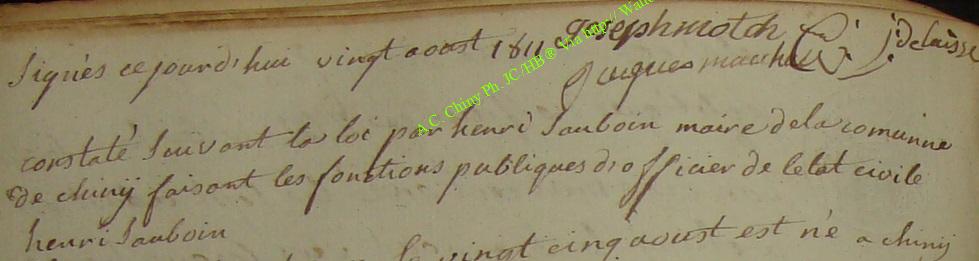 signés ce jourd'hui vingt aoust 1811 Joseph motch j: delaisse
Jaques
A.C. Chiny Ph. JC/HB® Via http://
constaté suivant la loi par henri Sauboin maire dela comunne
de chinij faisant les fonctions publiques d'officier de letat civile
henri Sauboin
le vingt cinq aoust est né a chinij